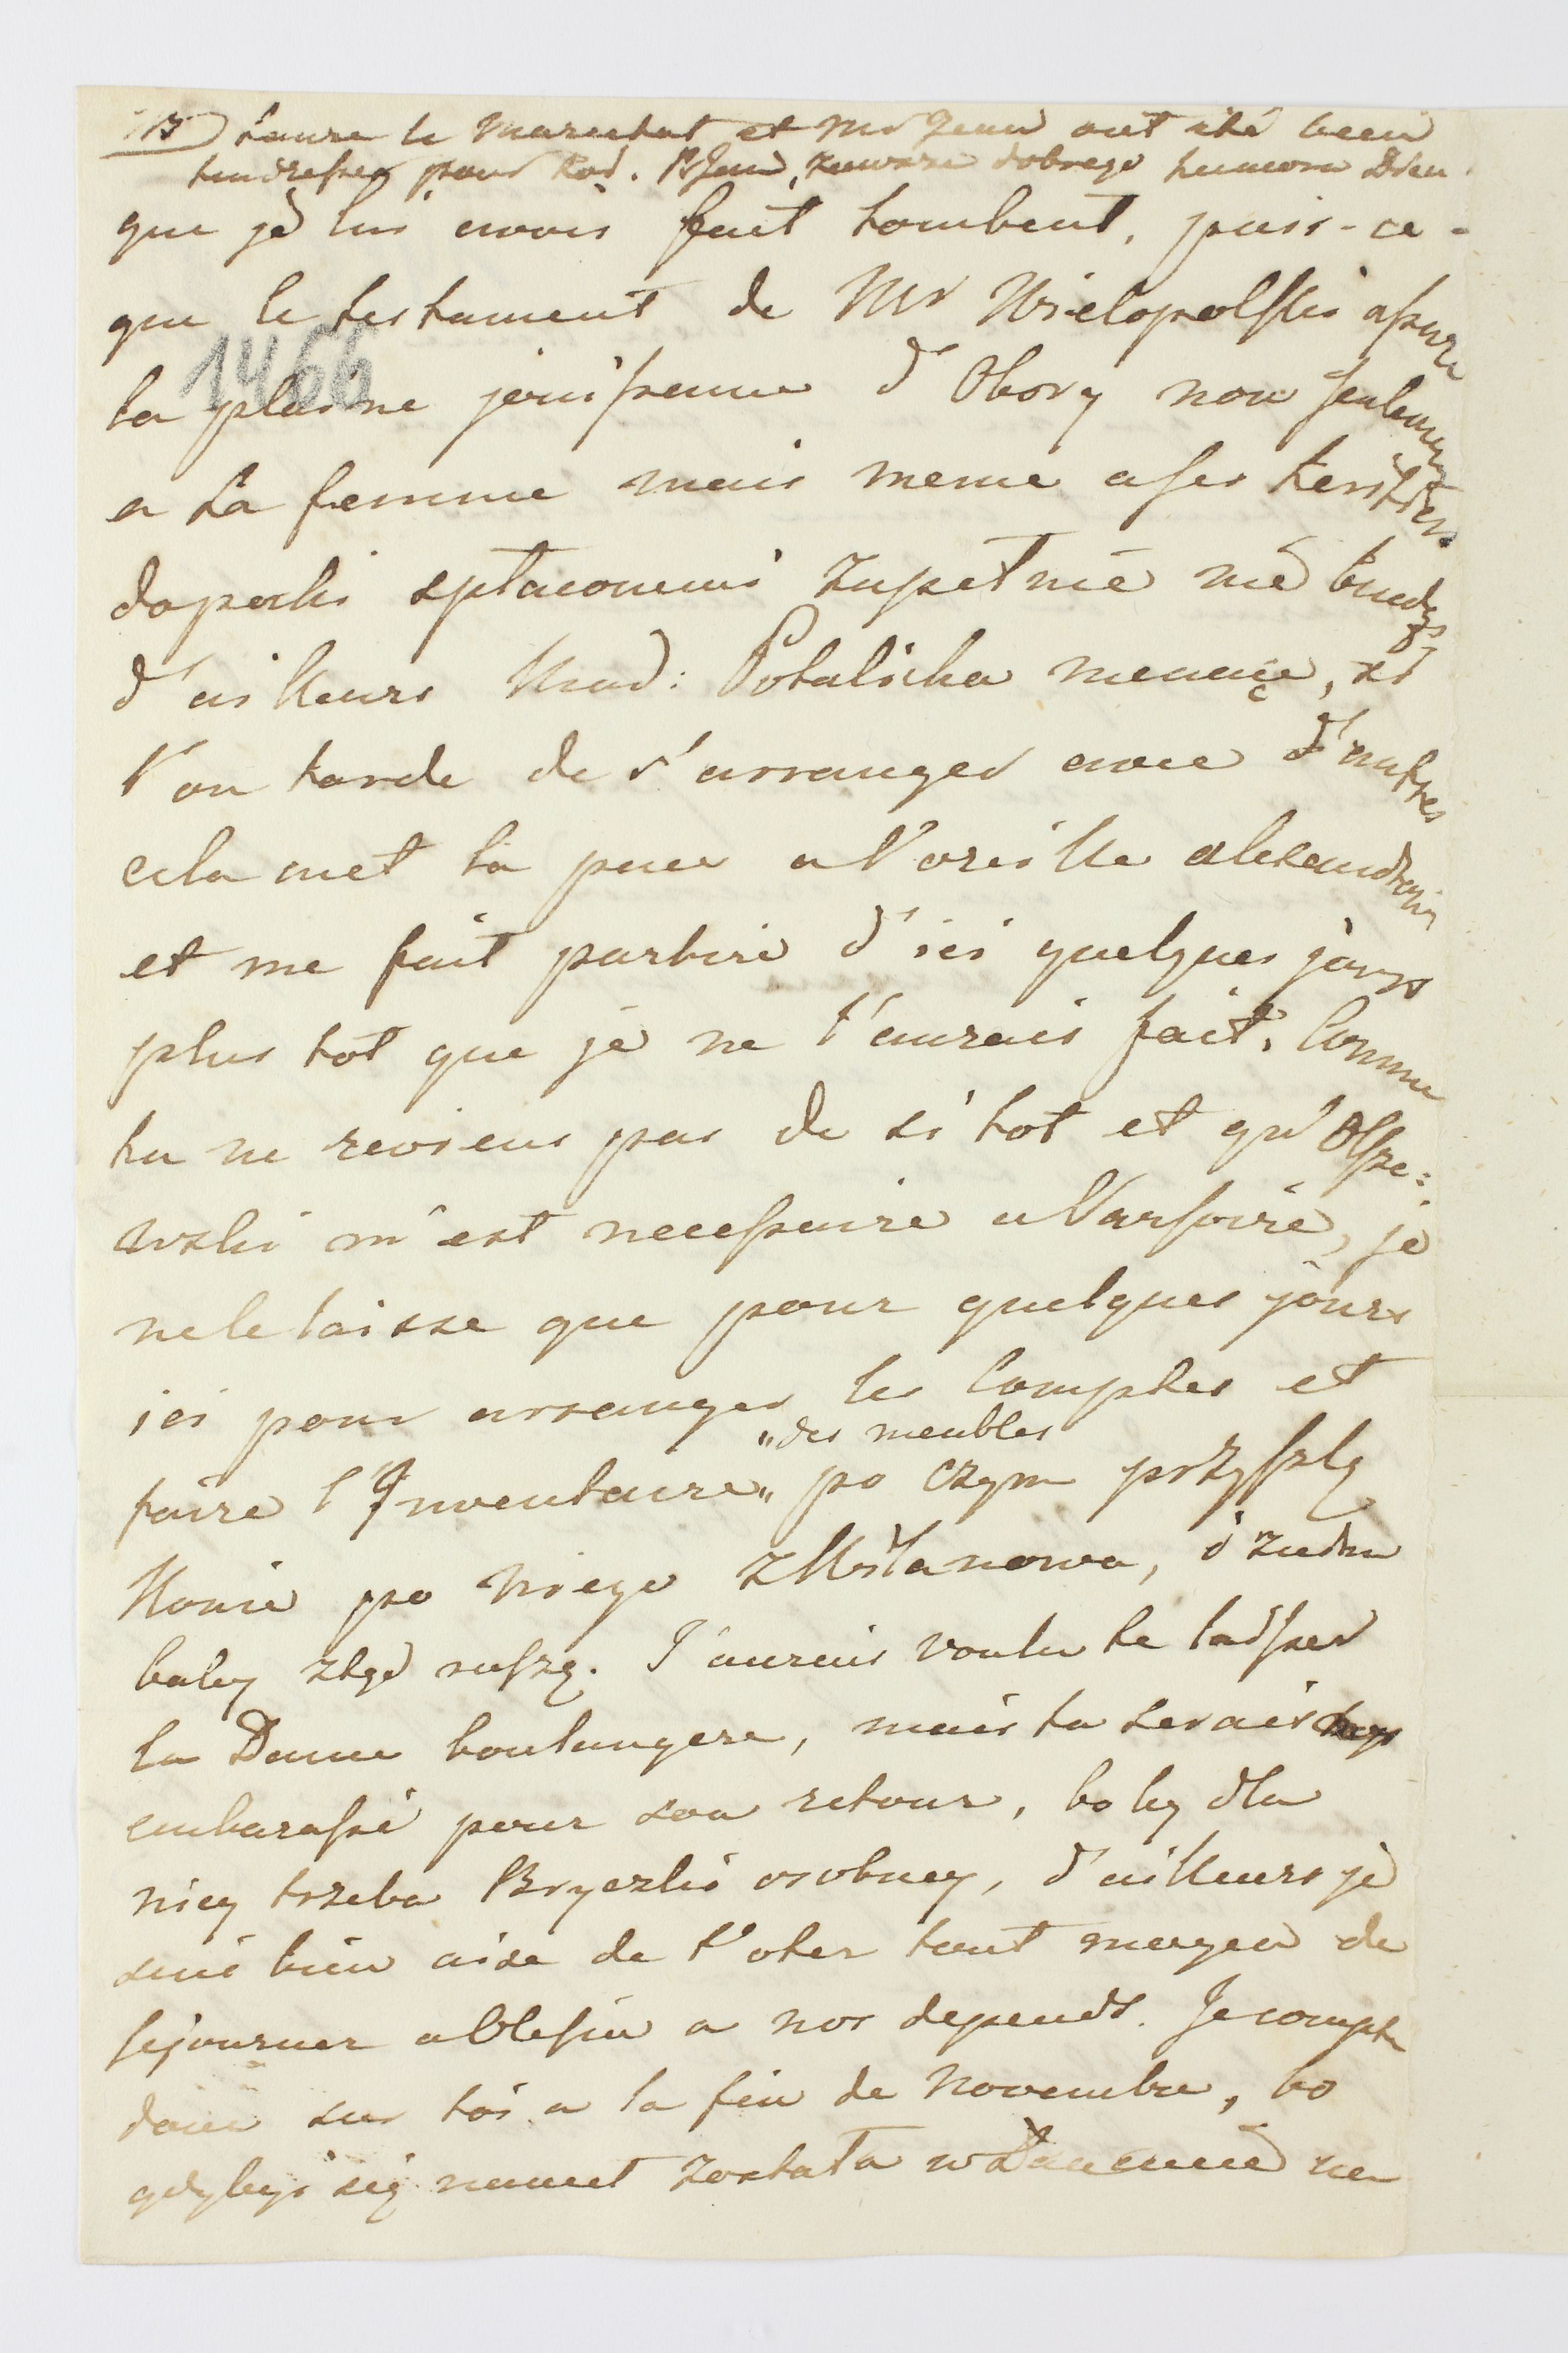 Laure le Marechat et Mr Jean ont été bien
tendresses pour Rod. P. Jean, zawsze dobrego humoru Dieu
que je lui avois fait tombent, puis-ce-
que le testament de Mr Wielopolski assure
1466
la pleine jouissance d'Obory non seulement
a sa femme mais meme a ses heritiers
dopoki spłaconemi zupełnie nie będą
d'ailleurs Mad: Potulicka menaçe, si
l'on tarde de s'arranger avec d'autres
cela met la puce a l'oreille alexandrowi
et me fait partire d'ici quelques jours
plus tot que je ne l'aurais fait. Comme
tu ne reviens pas de si tot et qu'Olsze:
wski m'est necessaire a Varsovie, je
ne le laisse que pour quelques jours
ici pour arranger les Comptes et
"des meubles
faire l'Inventaire" po czym przyszlę
Konie po niego z Wilanowa, i zadne
baby ztąd ruszą. J'aurais voulu te laisser
la Dame boulangere, mais tu serais
embarassé pour son retour, bo by dla
niey trzeba Bryczki osobney, d'ailleurs je
suis bien aise de l'oter tout moyen de
sejourner a Olesin a nos depends. Je compte
donc sur toi a la fin de Novembre, bo
gdybyś się nawet została w Łancucie na